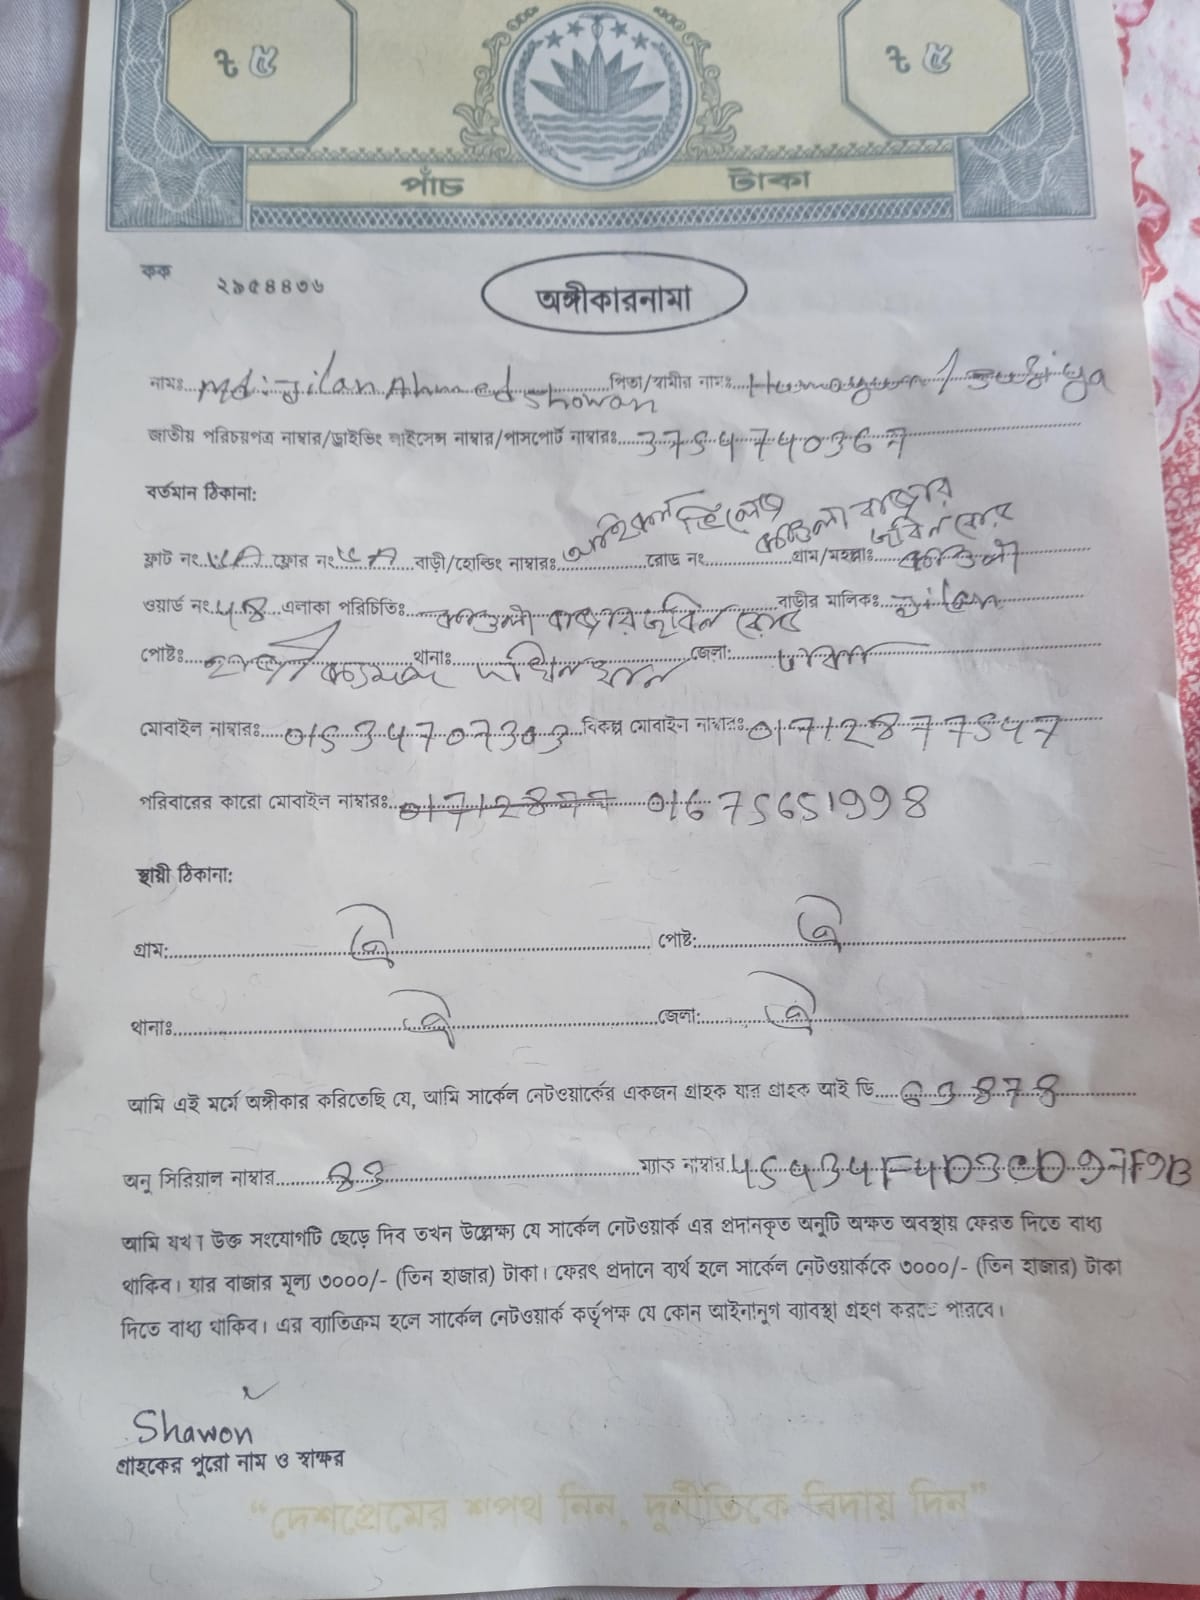 ৳ ৫ ৳ ৫
পাঁচ টাকা
কক ২৯৫৪৪৩৬
অঙ্গীকারনামা
নামঃ Md: Jilan Ahmed Showan পিতা/স্বামীর নামঃ Humayun / Sufiya
জাতীয় পরিচয়পত্র নাম্বার/ড্রাইভিং লাইসেন্স নাম্বার/পাসপোর্ট নাম্বারঃ 3754740367
বর্তমান ঠিকানা:
ফ্লাট নং ফ্লোর নং বাড়ী/হোল্ডিং নাম্বারঃ রোড নং গ্রাম/মহল্লাঃ
ওয়ার্ড নং এলাকা পরিচিতিঃ বাড়ীর মালিকঃ Jilan
পোষ্টঃ থানাঃ দক্ষিনখান জেলা: ঢাকা
মোবাইল নাম্বারঃ 01534707303 বিকল্প মোবাইল নাম্বারঃ 01712877547
পরিবারের কারো মোবাইল নাম্বারঃ 01675651998
স্থায়ী ঠিকানা:
গ্রাম: ঐ পোষ্ট: ঐ
থানাঃ ঐ জেলা: ঐ
আমি এই মর্মে অঙ্গীকার করিতেছি যে, আমি সার্কেল নেটওয়ার্কের একজন গ্রাহক যার গ্রাহক আই ডি
অনু সিরিয়াল নাম্বার ম্যাক নাম্বার
আমি যখন উক্ত সংযোগটি ছেড়ে দিব তখন উল্লেক্ষ্য যে সার্কেল নেটওয়ার্ক এর প্রদানকৃত অনুটি অক্ষত অবস্থায় ফেরত দিতে বাধ্য
থাকিব। যার বাজার মূল্য ৩০০০/- (তিন হাজার) টাকা। ফেরৎ প্রদানে ব্যর্থ হলে সার্কেল নেটওয়ার্ককে ৩০০০/- (তিন হাজার) টাকা
দিতে বাধ্য থাকিব। এর ব্যাতিক্রম হলে সার্কেল নেটওয়ার্ক কর্তৃপক্ষ যে কোন আইনানুগ ব্যাবস্থা গ্রহণ করতে পারবে।
Shawon
গ্রাহকের পুরো নাম ও স্বাক্ষর
“দেশপ্রেমের শপথ নিন, দুর্নীতিকে বিদায় দিন”